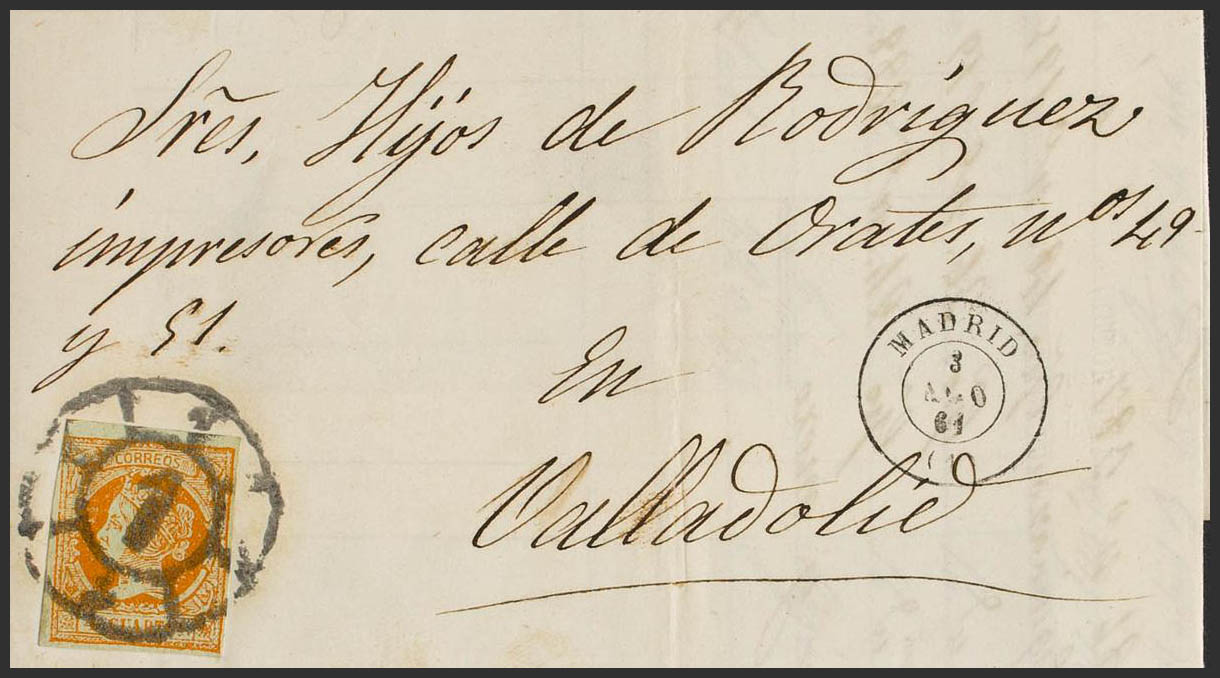 Sres, Hijos de Rodríguez
impresores, calle de Orates, nos 49
y 51.
En
Valladolid
MADRID
3
AGO
61
CORREOS
1
CUART